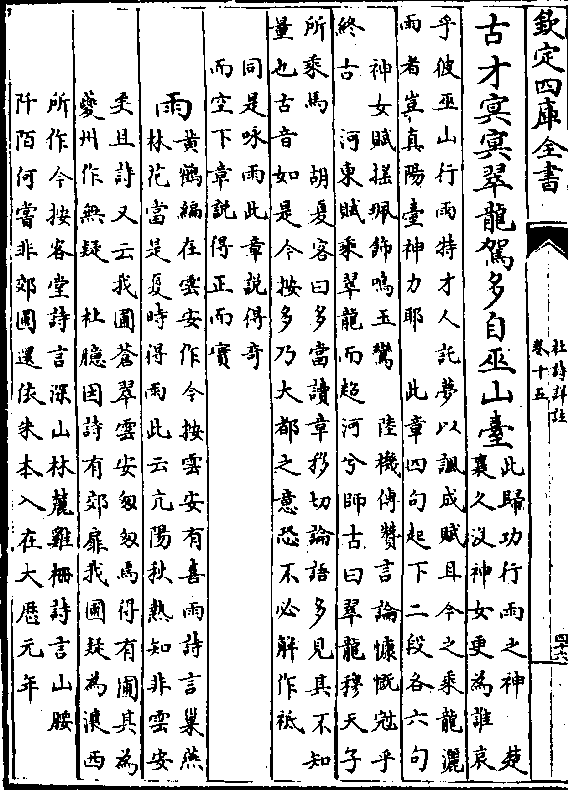 欽定四庫全書
杜詩詳註
卷十五
四十六
古才冥冥翠龍駕多自巫山臺
此歸功行雨之神 楚
襄久沒神女更為誰哀
乎彼巫山行雨特才人託夢以諷成賦且今之乘龍灑
雨者豈真陽臺神力耶 此章四句起下二段各六句
神女賦搖珮飾鳴玉鸞 陸機傳贊言論慷慨冠乎
終古 河東賦乘翠龍而超河兮師古曰翠龍穆天子
所乘馬 胡夏客曰多當讀章移切論語多見其不知
量也古音如是今按多乃大都之意恐不必解作祗
同是咏雨此章說得奇
而空下章說得正而實
雨
黃鶴編在雲安作今按雲安有喜雨詩言巢燕
林花當是夏時得雨此云亢陽秋熱知非雲安
矣且詩又云我圃蒼翠雲安匆匆焉得有圃其為
夔州作無疑 杜臆因詩有郊扉我圃疑為瀼西
所作今按客堂詩言深山林麓雞柵詩言山腰
阡陌何嘗非郊圃還依朱本入在大厯元年